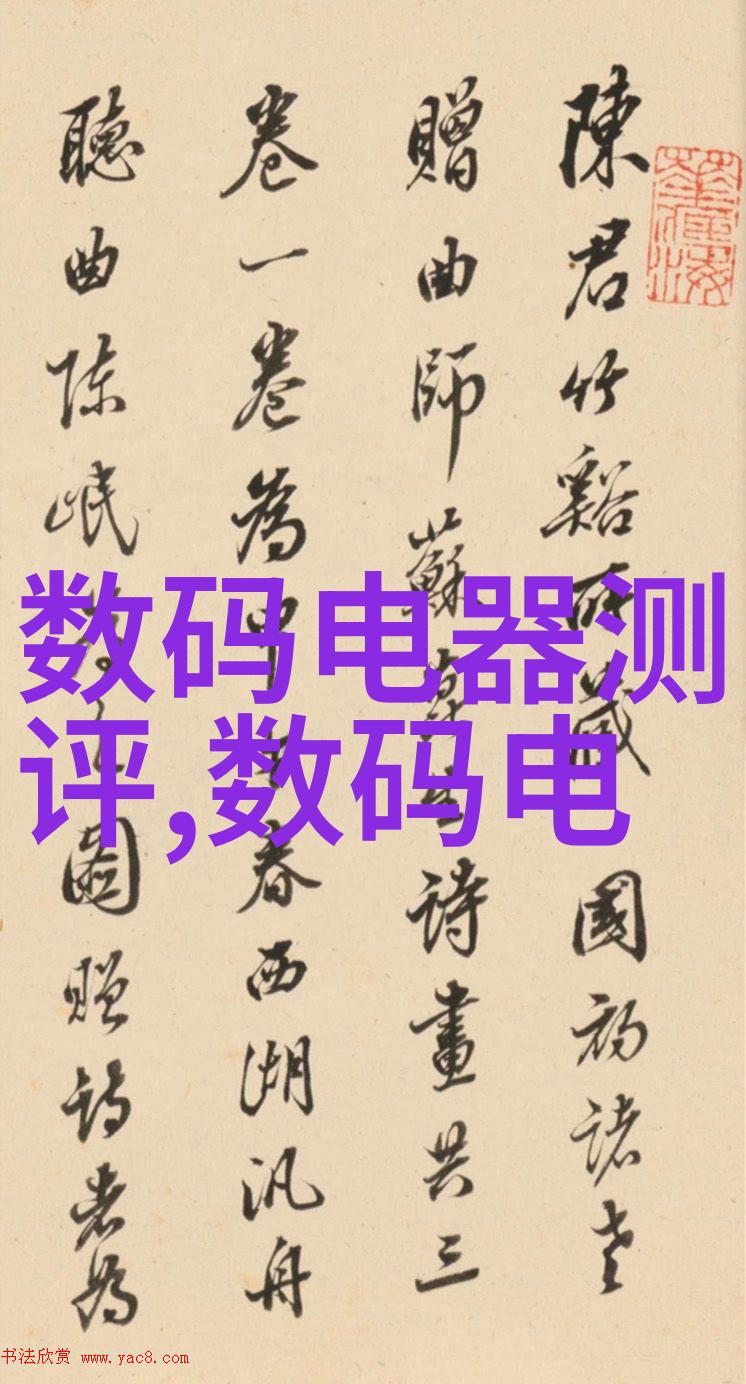 陳君竹谿所藏 國初諸老
贈曲師蘇崑生詩畫共三
卷一卷為甲春西湖汎舟
聽曲陳岷圖贈詩者為
数码电器测
评,数码电
书法欣赏 www.yac8.com